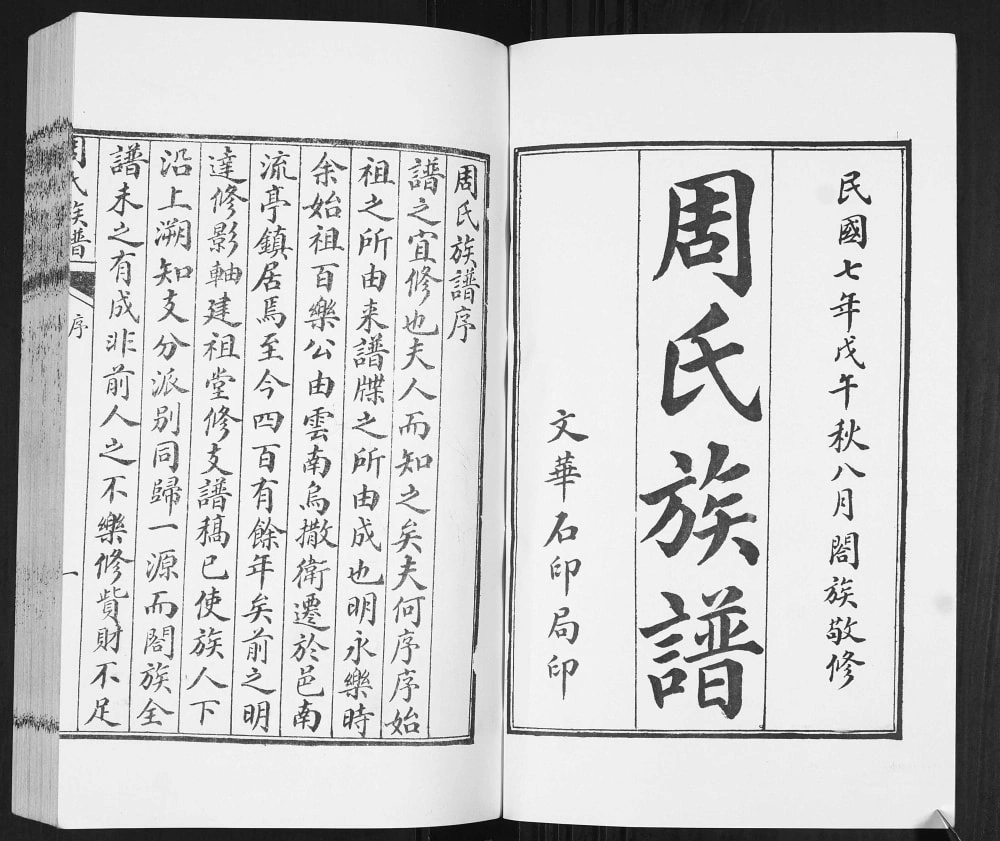 民國七年戊午秋八月閤族敬修
周氏族譜
文華石印局印
周氏族譜序
譜之宜修也夫人而知之矣夫何序序始
祖之所由来譜牒之所由成也明永樂時
余始祖百樂公由雲南烏撒衛遷於邑南
流亭鎮居焉至今四百有餘年矣前之明
達修影軸建祖堂修支譜稿已使族人下
沿上溯知支分派別同歸一源而閤族全
譜未之有成非前人之不樂修貲財不足
周氏族譜
序
一